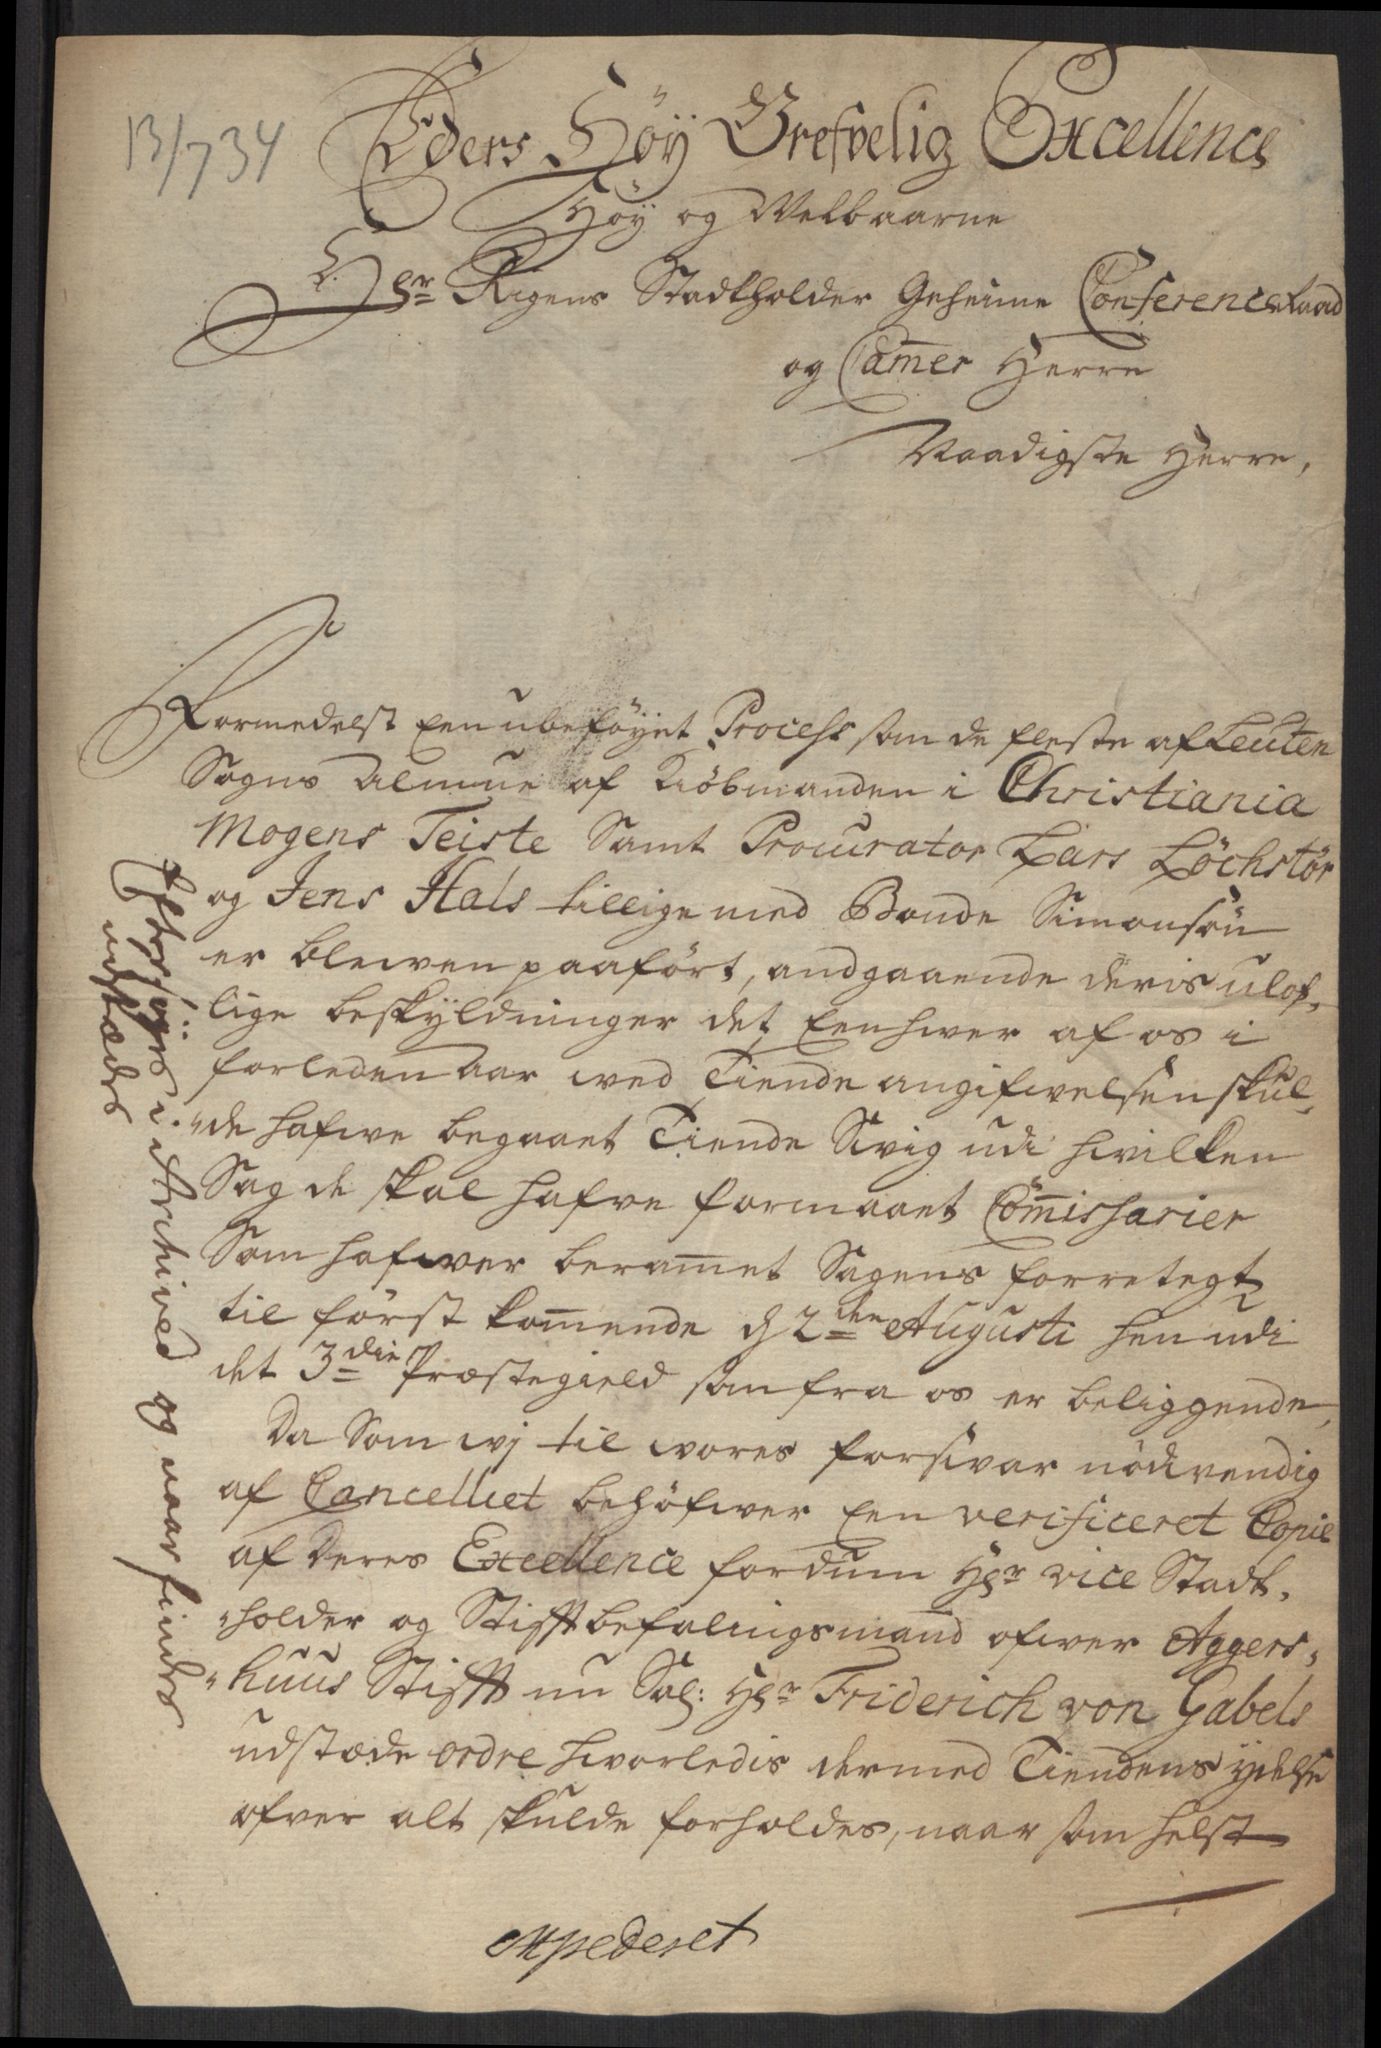 13/734
Eders Höÿ Grefvelig Excellence
Höÿ og Velbaarne
Hr Rigens Stadtholder Geheime Conference Raad
og Cam̄er Herre
Naadigste Herre,
Formedelst Een ubeföÿet Process som de fleste af Leuten
Sogns Almue af Kiöbmanden i Christiania
Mogens Teiste Samt Procurator Lars Löchstör
og Jens Hals tillige med Bonde Simonsön
er blewen paaført, andgaaende deris ulof-
lige beskÿldninger det Eenhwer af os i
forleden Aar wed Tiende angifwelsen skul-
"de hafwe begaaet Tiende Svig udi hwilken
Sag de skal hafve formaaet Com̄issarier
Som hafwer beram̄et Sagens forretegt
til först kom̄ende d 2den Augusti hen udi
det 3die Præstegield som fra os er beliggende,
Da Som wj til wores forswar nödvendig
af Cancelliet behöfwer Een verificeret Copie
af Deres Excellence fordum Hr vice Stadt-
"holder og Stifftbefalingsmand ofwer Aggers-
"huus Stifft nu Sal: Hr Friderich von Gabels
udstæde ordre hworledis dermed Tiendens ÿdelse
ofver alt skulde forholdes, naar som helst
expederet
Eftersöges i Archived og naar findes
udstædes